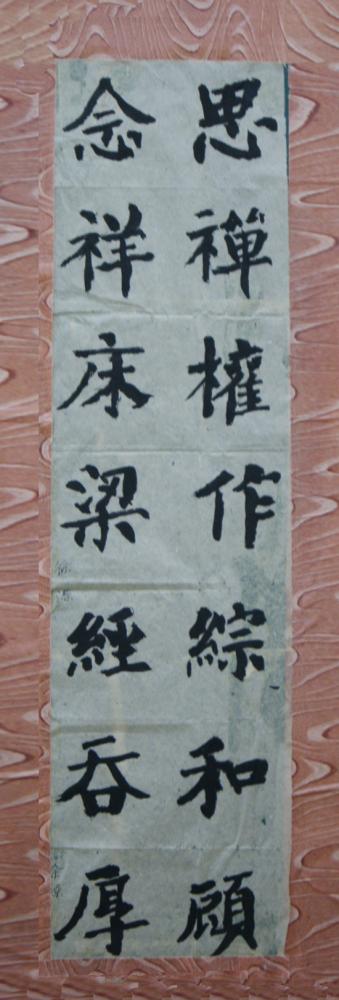 思禪權作綜和顧
念祥床梁經吞厚